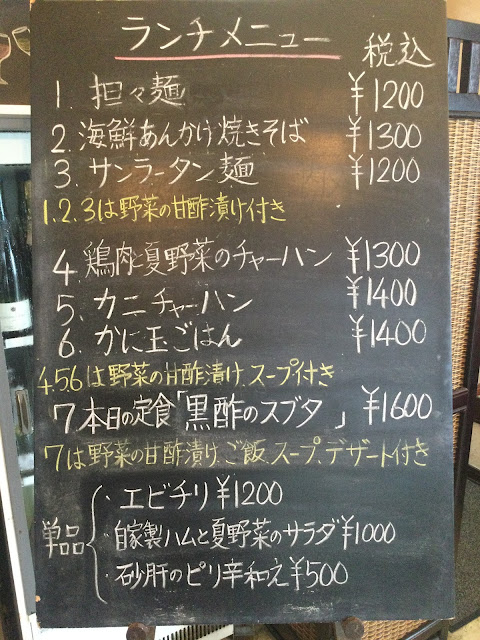 ランチメニュー 税込
1. 担々麺 ¥1200
2. 海鮮あんかけ焼きそば ¥1300
3. サンラータン麺 ¥1200
1.2.3は野菜の甘酢漬け付き
4. 鶏肉と夏野菜のチャーハン ¥1300
5. カニチャーハン ¥1400
6. かに玉ごはん ¥1400
4.5.6は野菜の甘酢漬け、スープ付き
7 本日の定食「黒酢のスブタ」 ¥1600
7は野菜の甘酢漬け、ご飯、スープ、デザート付き
単品
・エビチリ ¥1200
・自家製ハムと夏野菜のサラダ ¥1000
・砂肝のピリ辛和え ¥500